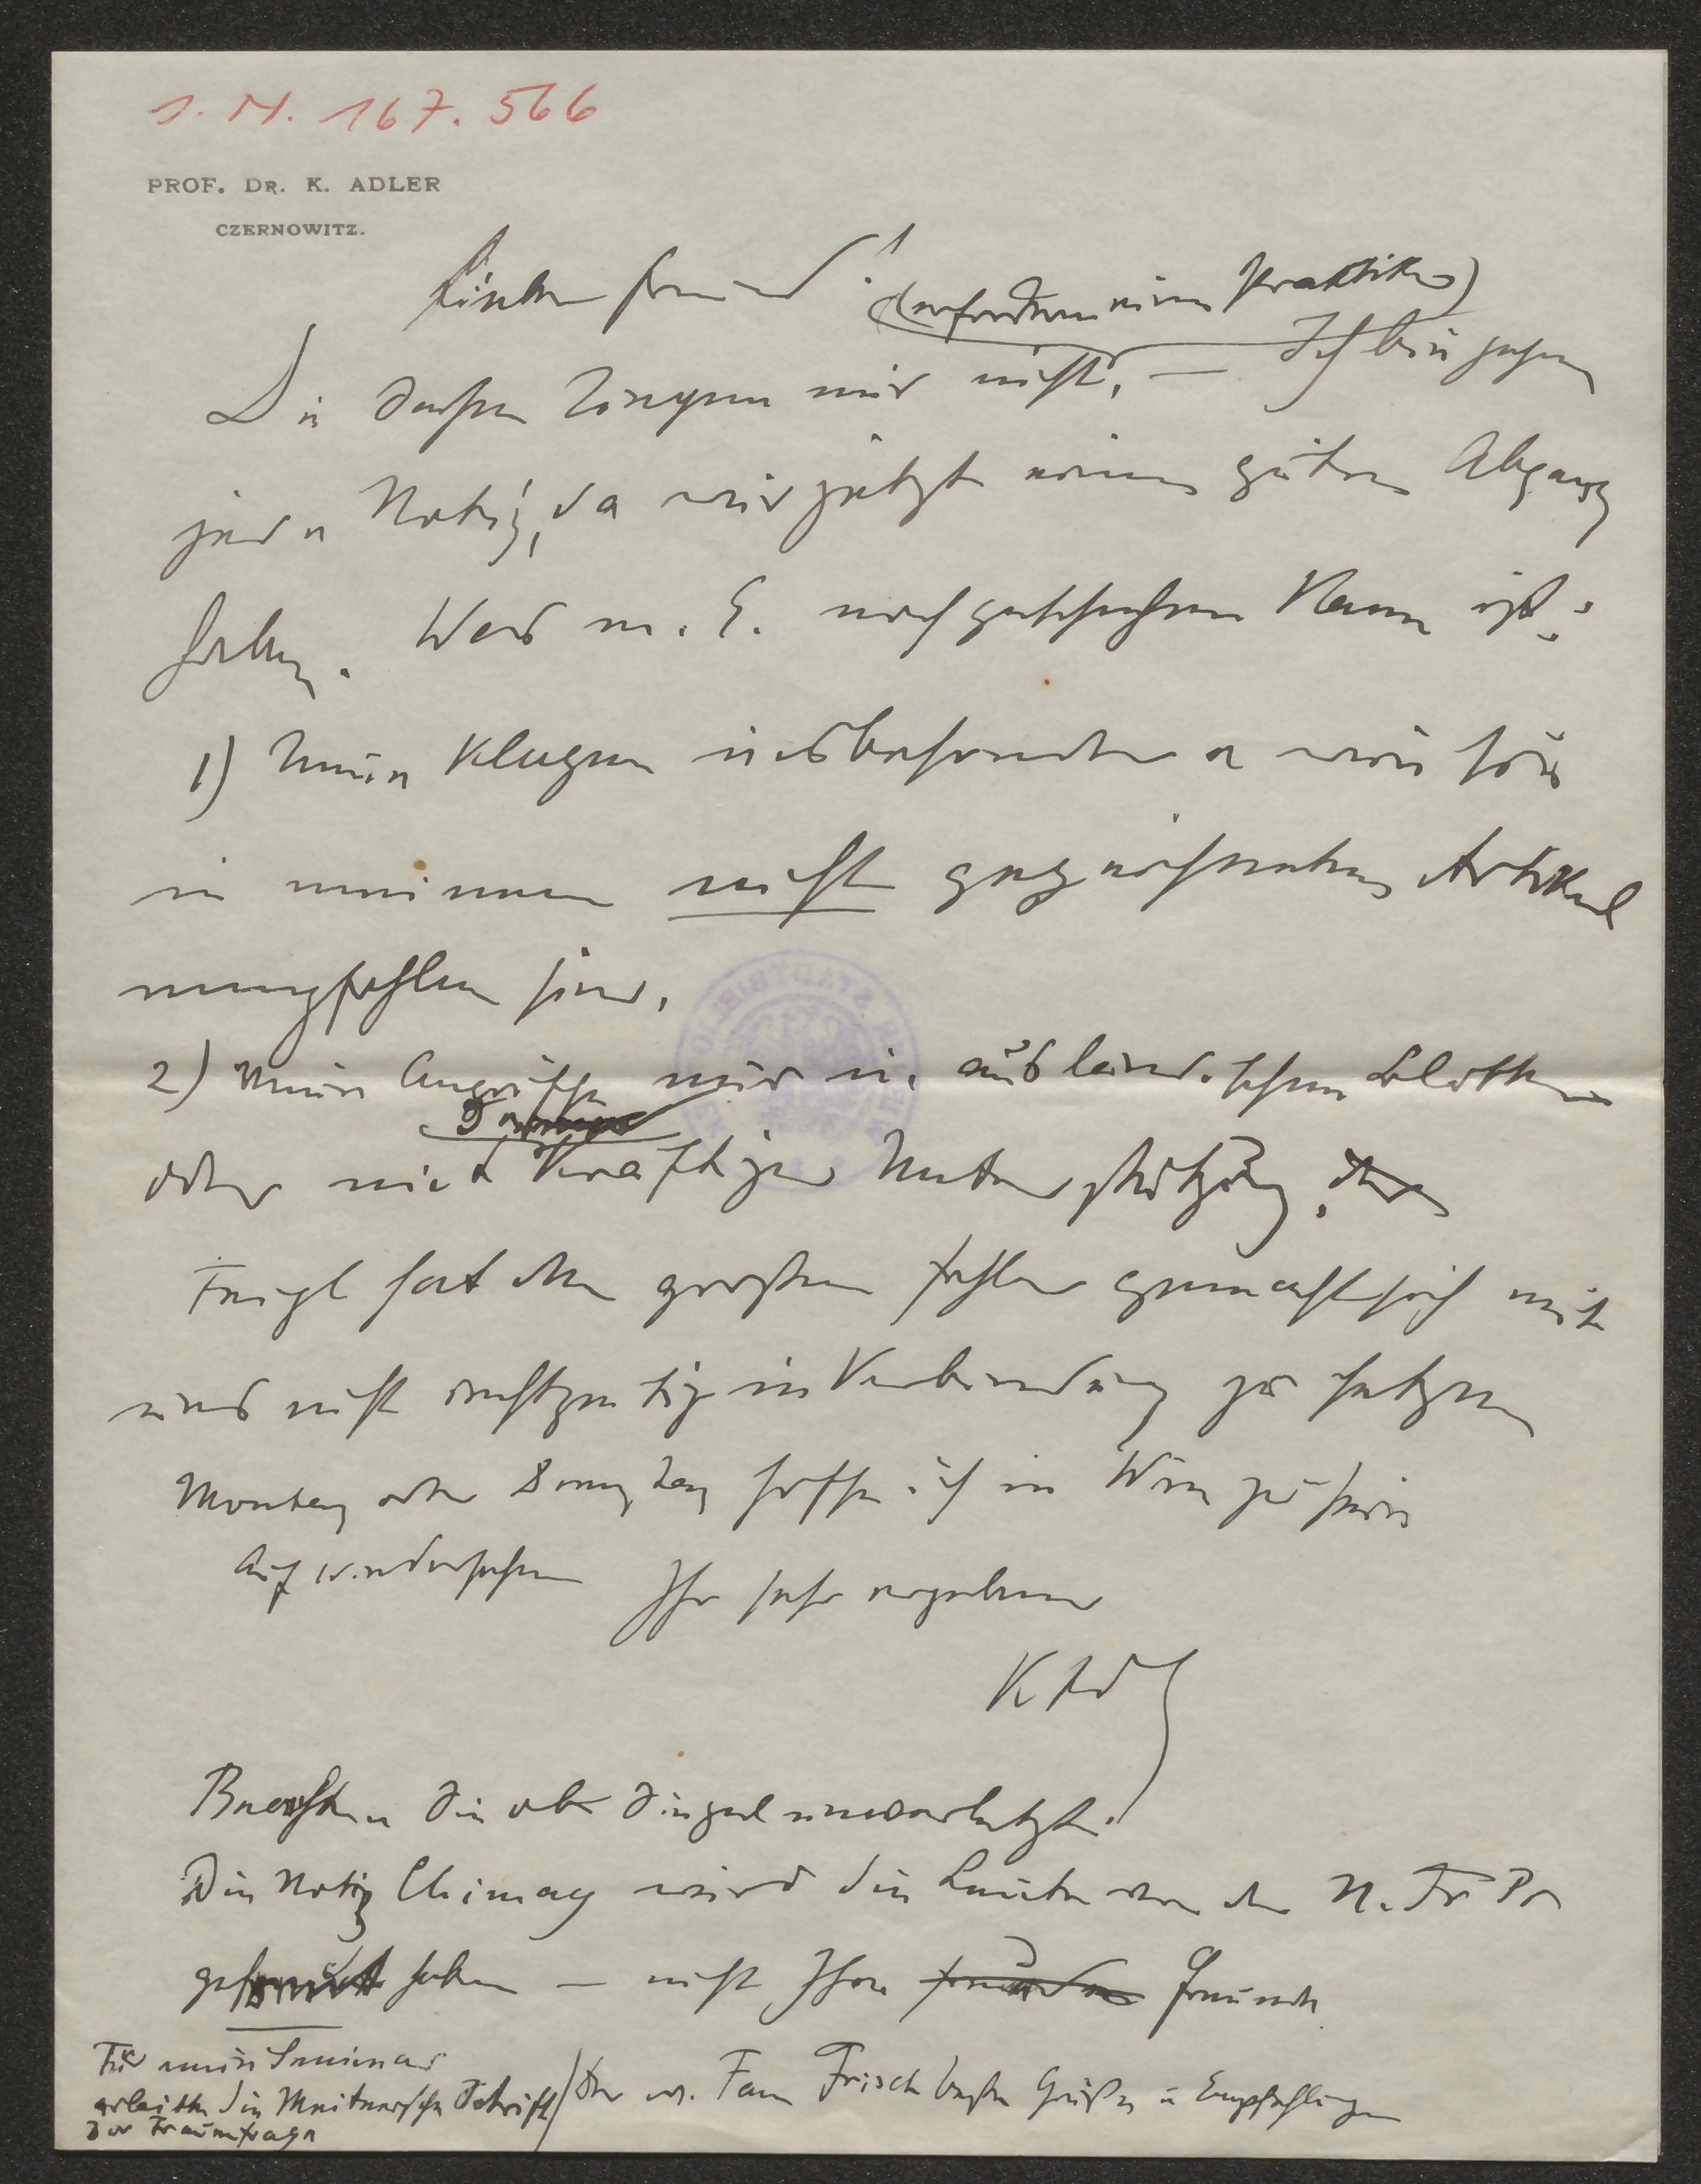 J. N. 167.566
PROF. DR. K. ADLER
CZERNOWITZ.
Lieber Freund!
(erfordern einen Praktiker)
Die Sachen drängen mir nicht, — Ich bin gegen
jede Notiz, da wir jetzt einen guten Abgang
haben. Was m. E. noch geschehen kann ist:
1) Neue Klagen insbesondere wie sie
in meinem nicht gezeichneten Artikel
empfohlen sind.
2) Neue Angriffe nur in ausländischen Blättern
oder mit kräftiger Unterstützung.
Feigl hat den großen Fehler gemacht sich mit
uns nicht rechtzeitig in Verbindung zu setzen
Montag oder Dienstag hoffe ich in Wien zu sein
Auf Wiedersehen Ihr sehr ergebener
K Adl
Die Notiz Chimay wird die Leute von der N. Fr Pr
haben — nicht Ihre Freunde
Für mein Seminar
erbitte die Meitnersche Schrift
zur Frauenfrage
Fam Frisch beste Grüße u Empfehlungen